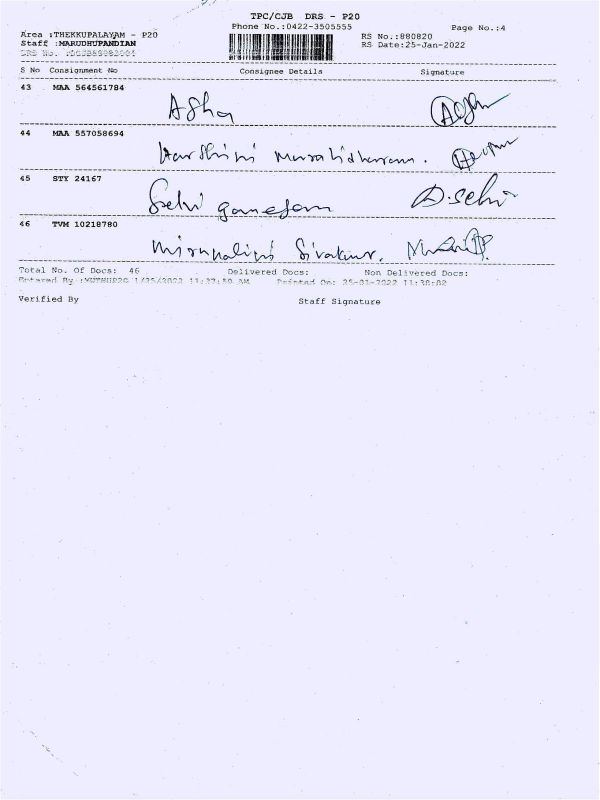 TPC/CJB DRS - P20
Phone No.:0422-3505555 Page No.:4
Area :THEKKUPALAYAM - P20 RS No.:880820
Staff :MARUDHUPANDIAN RS Date:25-Jan-2022
DRS No.
S No Consignment No Consignee Details Signature
43 MAA 564561784 Asha
44 MAA 557058694 Harshini Muralidharan.
45 STY 24167 Selvi ganesan D.Selvi
46 TVM 10218780 Mirunalini Sivakumr.
Total No. Of Docs: 46 Delivered Docs: Non Delivered Docs:
Entered By :MUTHUP20 1/25/2022 11:37:50 AM Printed On: 25-01-2022 11:38:02
Verified By Staff Signature